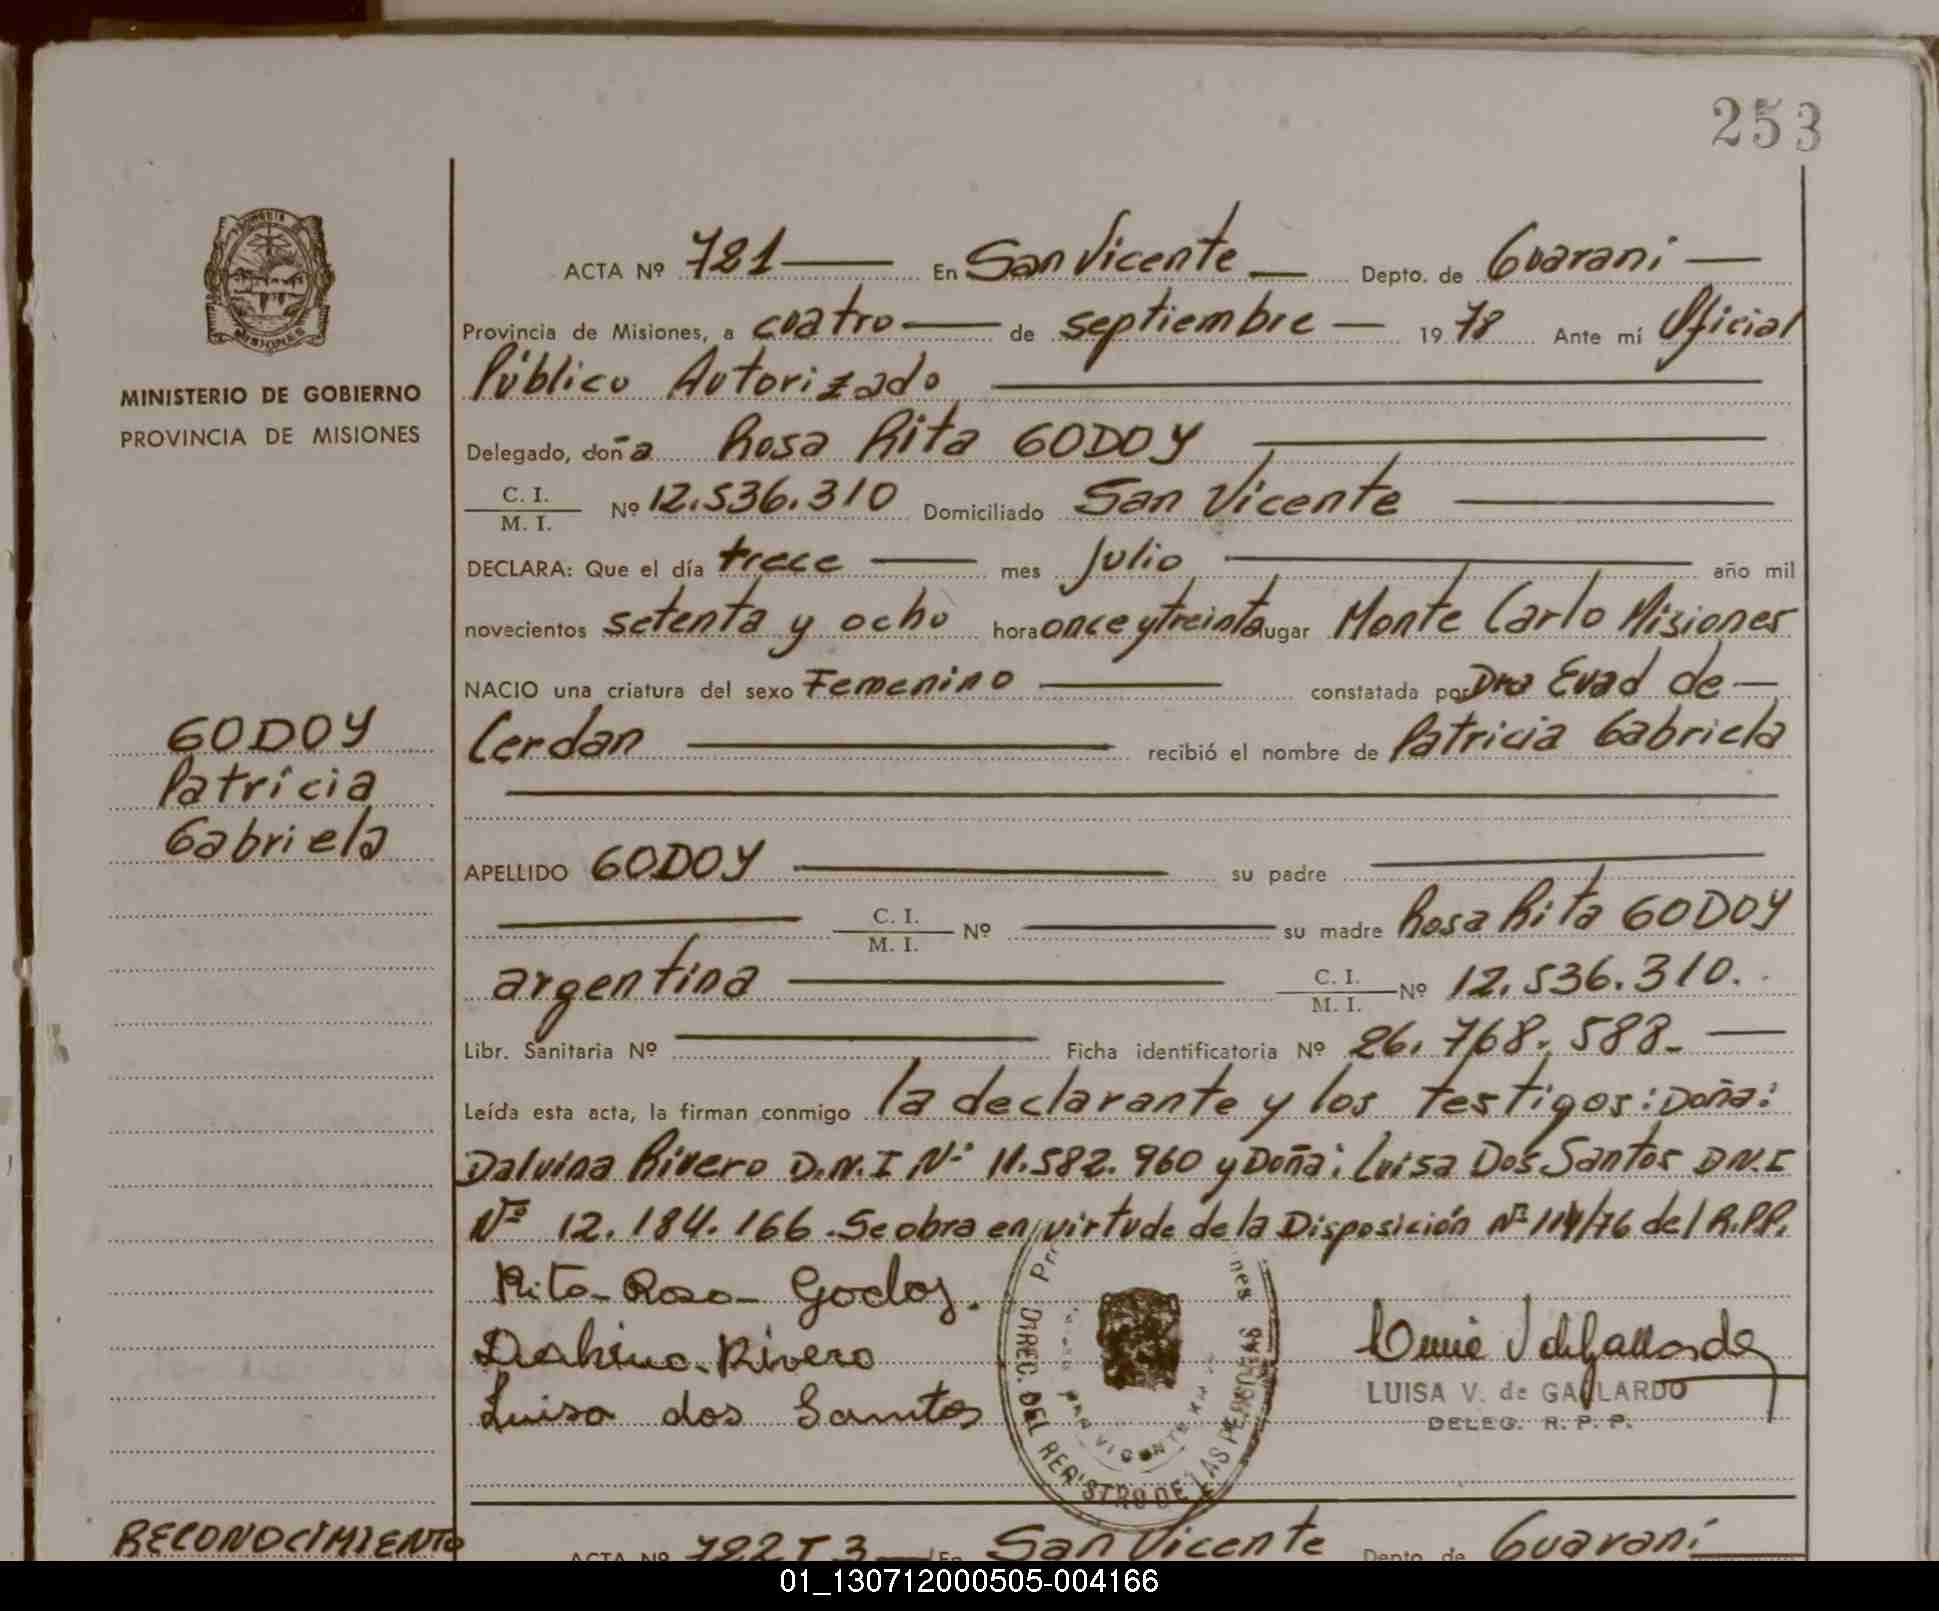 253
ACTA Nº 721 En San Vicente Depto. de Guarani
Provincia de Misiones, a cuatro de septiembre 1978 Ante mí Oficial
Público Autorizado
MINISTERIO DE GOBIERNO
PROVINCIA DE MISIONES
Delegado, doña Rosa Rita GODOY
C. I.
M. I. Nº 12.536.310 Domiciliado San Vicente
DECLARA: Que el día trece mes Julio año mil
novecientos setenta y ocho hora once y treinta lugar Monte Carlo Misiones
NACIO una criatura del sexo Femenino constatada por Dra Evad de
Cerdan recibió el nombre de Patricia Gabriela
GODOY
Patricia
Gabriela
APELLIDO GODOY su padre
C. I.
M. I. Nº su madre Rosa Rita GODOY
argentina C. I.
M. I. Nº 12.536.310.
Libr. Sanitaria Nº Ficha identificatoria Nº 26.768.588.
Leída esta acta, la firman conmigo la declarante y los testigos: Doña:
Dalvina Rivero D.N.I Nº 11.582.960 y Doña: Luisa Dos Santos DN.I
Nº 12.184.166. Se obra en virtude de la Disposición Nº 114/76 del R.P.P.
Rita Rosa Godoy.
Rivero
Luisa dos Santos
DIREC. DEL REGISTRO DE LAS PERSONAS
SAN VICENTE
LUISA V. de GALLARDO
DELEG. R. P. P.
RECONOCIMIENTO
ACTA Nº 722 T 3 En San Vicente Depto de Guaraní
01_130712000505-004166